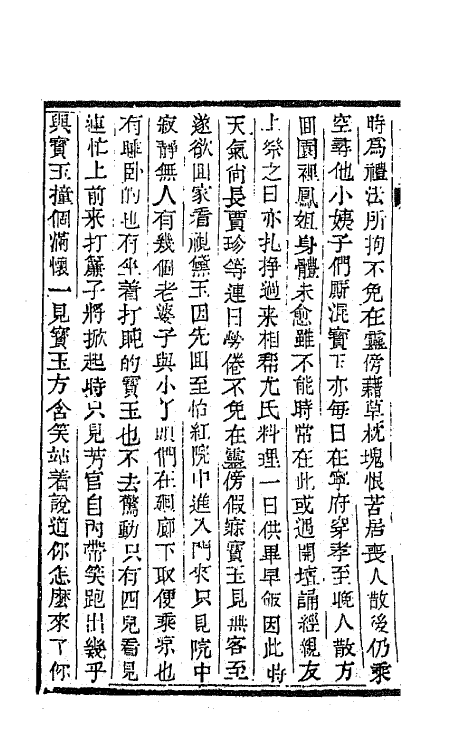 時爲禮法所拘不免在靈傍藉草枕塊恨苦居喪人散後仍乘
空尋他小姨子們厮混寶玉亦每日在寧府穿孝至晚人散方
回園裡鳳姐身體未愈雖不能時常在此或遇開壇誦經親友
上祭之日亦扎掙過来相帮尤氏料理一日供畢早飯因此時
天氣尚長賈珍等連日勞倦不免在靈傍假寐寶玉見無客至
遂欲回家看視黛玉因先回至怡紅院中進入門來只見院中
寂靜無人有幾個老婆子與小丫頭們在廻廊下取便乘凉也
有睡卧的也有坐着打盹的寶玉也不去驚動只有四兒看見
連忙上前来打簾子將掀起時只見芳官自內帶笑跑出幾乎
與寶玉撞個滿懷一見寶玉方含笑站着說道你怎麼來了你